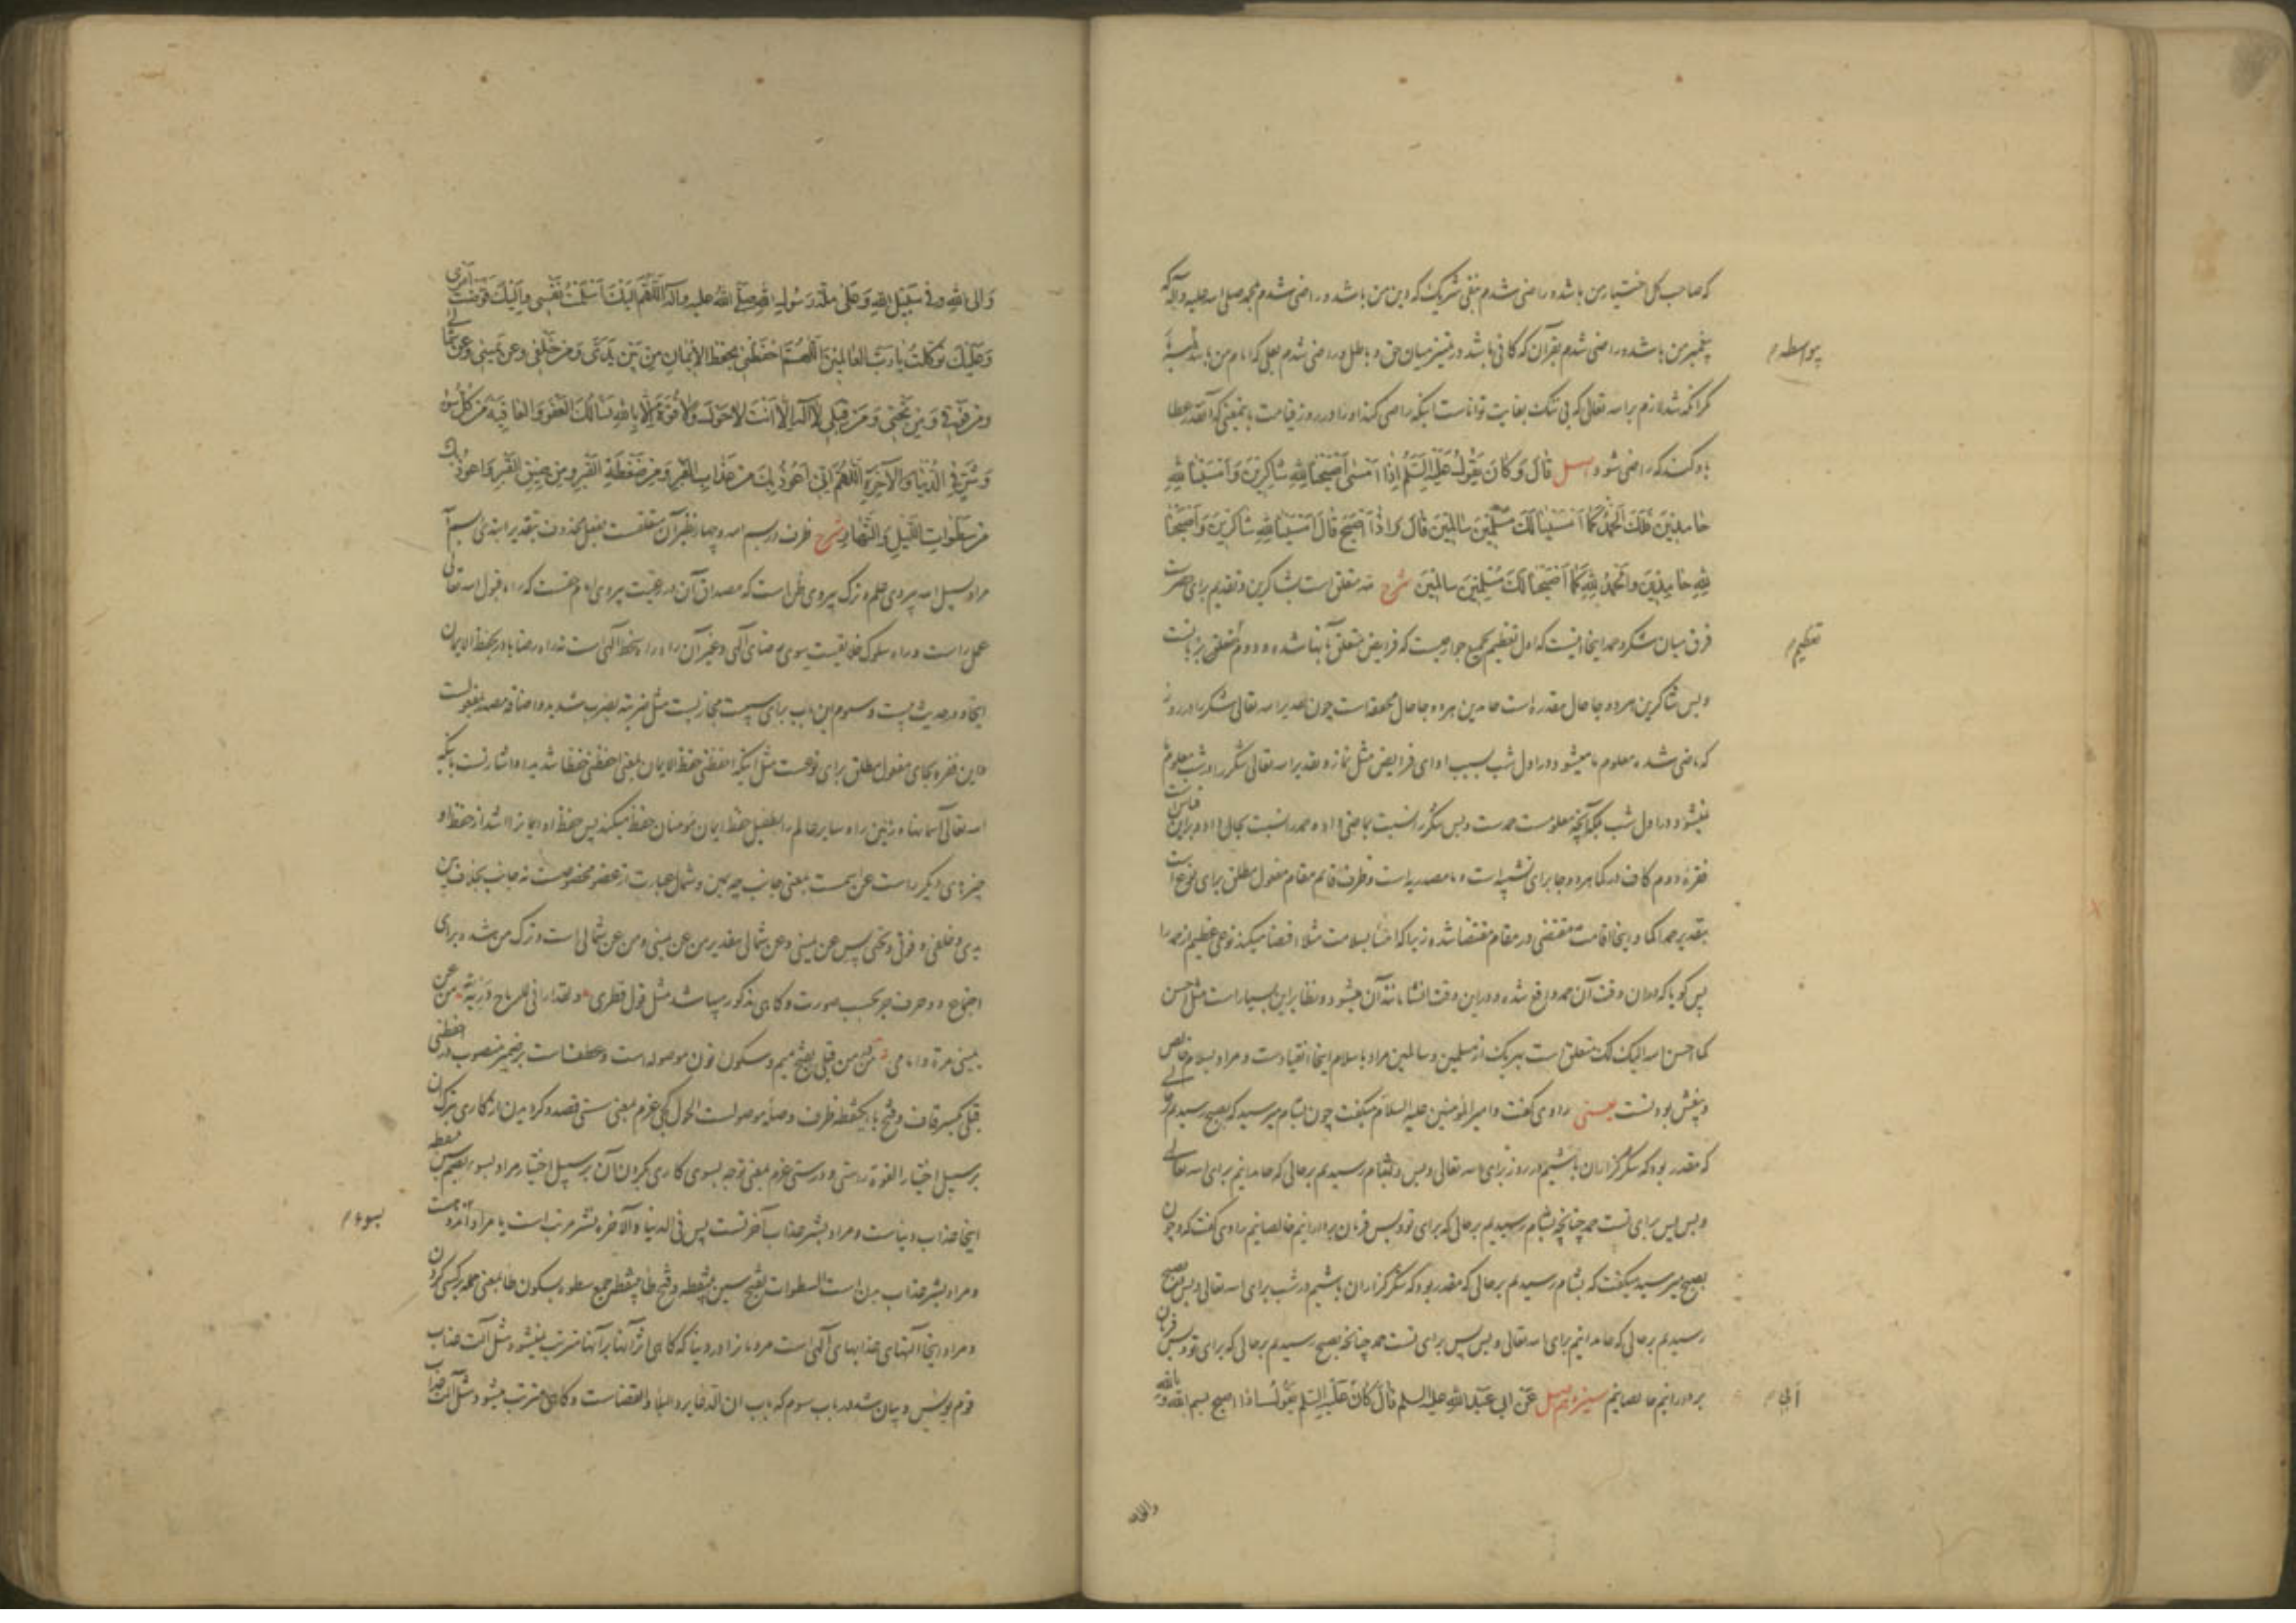 که صاحب کل اختیار من باشد و راضی شدم بنفی شریک که دین من باشد و راضی شدم بمحمد صلی الله علیه وآله که
پیغمبر من باشد و راضی شدم بقرآن که کافی باشد در تمیز میان حق و باطل و راضی شدم بعلی که امام من باشد
بواسطه م
مگر آنکه شد لازم بر الله تعالی که بی ننگ بغایت تواناست اینکه راضی کند او را در روز قیامت بمعنی که آنقدر عطا
باو کند که راضی شود اصل قَالَ وَكَانَ يَقُولُ عَلَيْهِ السَّلَمُ إِذَا أَمْسَى أَصْبَحْنَا لِلّهِ شَاكِرِينَ وَأَمْسَيْنَا لِلّهِ
حَامِدِينَ فَلَكَ الْحَمْدُ كَمَا أَمْسَيْنَا لَكَ مُسْلِمِينَ سَالِمِينَ قَالَ وَإِذَا أَصْبَحَ قَالَ أَمْسَيْنَا لِلّهِ شَاكِرِينَ وَأَصْبَحْنَا
لِلّهِ حَامِدِينَ وَالْحَمْدُ لِلّهِ كَمَا أَصْبَحْنَا لَكَ مُسْلِمِينَ سَالِمِينَ شرح لله متعلق است بشاکرین و تقدیم برای حصر است
فرق میان شکر و حمد اینجا اینست که اول تعظیم بجمیع جوارحیست که فرایض متعلق بآنها شده و دوم تعظیم بزبانست
تعظیم م
و بس شاکرین هر دو جا حال مقدره است حامدین هر دو جا حال محققه است چون تقدیر الله تعالی شکر را در روز
که ماضی شده معلوم ما میشود در اول شب بسبب ادای فرایض مثل نماز و تقدیر الله تعالی شکر را در شب معلوم ما
نمیشود در اول شب بلکه آنچه معلومست حمدست و بس شکر را نسبت بماضی داده و حمد را نسبت بحال داده و بر این قیاس است
فقره دوم کاف در کما هر دو جا برای تشبیه است و ما مصدریه است و ظرف قایم مقام مفعول مطلق برای نوع است
بتقدیر حمدا کما و اینجا اقامت مقتضی در مقام مقتضا شده زیرا که امسا بسلامت مثلا اقتضا میکند نوعی عظیم از حمد را
پس گویا که در آن وقت آن حمد واقع شده و در این وقت انشا مانند آن میشود و نظایر این بسیار است مثل احسن
کما احسن الله الیک لک متعلق است بهریک از مسلمین و سالمین مراد باسلام اینجا انقیادست و مراد بسلام خالص
و بیغش بودنست یعنی راوی گفت و امیر المؤمنین علیه السلام میگفت چون بشام میرسید که بصبح رسیدیم
که مقدر بود که شکر گزاران باشیم در روز برای الله تعالی و بس و بشام رسیدیم بر حالی که حامدانیم برای الله تعالی
و بس پس برای تست حمد چنانچه بشام رسیدیم بر حالی که برای تو و بس فرمان بردارانیم خالصانیم راوی گفت که و چون
بصبح میرسید میگفت که بشام رسیدیم بر حالی که مقدر بود که شکر گزاران باشیم در شب برای الله تعالی و بس و بصبح
رسیدیم بر حالی که حامدانیم برای الله تعالی و بس پس برای تست حمد چنانچه بصبح رسیدیم بر حالی که برای تو و بس فرمان
بردارانیم خالصانیم سیزدهم اصل عَنْ ابي عَبْدِ اللهِ عليه السلم قَالَ كَانَ عَلَيْهِ السَّلم يَقُولُ اذا اصبح بسم الله وبالله
أبي م
والى الله
وَالى اللهِ وَفي سَبِيْلِ اللهِ وَعَلى مِلَّةِ رَسُولِ اللهِ صَلَّى اللهُ عليه وآله اَللّهُمَّ اِلَيْكَ اَسْلَمْتُ نَفْسي وَاِلَيْكَ فَوَّضْتُ اَمْري
وَعَلَيْكَ تَوَكَّلْتُ يَا رَبَّ العَالمِينَ اَللّهُمَّ احْفَظْني بِحِفْظِ الاِيْمَانِ مِنْ بَيْنِ يَدَيَّ وَمِنْ خَلْفي وَعَنْ يَميني وَعَنْ شِمَالي
وَمِنْ فَوْقي وَمِنْ تَحْتي وَمِنْ قِبَلي لاَ اِلهَ اِلّا اَنْتَ لا حَوْلَ وَلا قُوَّةَ اِلّا بِاللهِ نَسْألُكَ الْعَفْوَ وَالعَافِيَةَ مِنْ كُلِّ سُوءٍ
وَشَرٍّ فِي الدُّنْيَا وَالآخِرَةِ اَللّهُمَّ اِنّي اَعُوذُ بِكَ مِنْ عَذَابِ القَبْرِ وَمِنْ ضَغْطَةِ القَبْرِ وَمِنْ ضِيقِ القَبْرِ وَاَعُوذُ بِكَ
مِنْ سَطَوَاتِ اللَّيْلِ وَالنَّهَارِ شرح ظرف در بسم الله و چهار نظیر آن متعلقست بفعل محذوف بتقدیر ابتدئ بسم الله
مراد بسبیل الله پیروی علم و ترک پیروی ظن است که مصداق آن در رعیت پیروی امام حقست که راه قبول الله تعالی
عمل راست و راه سلوک خلایقیست بسوی رضای الهی و غیر آن راه راه سخط الهی است نه راه رضا با در بحفظ الایمان
اینجا و در حدیث بیست و سوم این باب برای سببیت مجازیست مثل ضربته بضرب شدید و اضافه مصدر بمفعولست
و این فقره بجای مفعول مطلق برای نوعست مثل اینکه احفظنی حفظ الایمان بمعنی احفظنی حفظا شدیدا و اشارتست باینکه
الله تعالی آسمانها و زمین را و سایر عالم را بطفیل حفظ ایمان مؤمنان حفظ میکند پس حفظ او ایمانرا اشد از حفظ او
چیزهای دیگر راست عن اسمست بمعنی جانب چه یمین و شمال عبارت از عضو مخصوصست نه جانب بخلاف بین
یدی و خلفی و فوقی و تحتی پس عن یمینی و عن شمالی بتقدیر من عن یمینی و من عن شمالی است و ترک من شد برای
اجتماع دو حرف جر بحسب صورت و گاهی مذکور میباشد مثل قول قطری و لقد ارانی للرماح دریئة من عن
یمینی مرة و امامی من من قبلی بفتح میم و سکون نون موصوله است و عطف است بر ضمیر منصوب در احفظنی
قبلی بکسر قاف و فتح با یکنقطه ظرف و صله موصولست الحول کجی عزم بمعنی سستی قصد و کردیدن از کاری بترک آن
بر سبیل اختیار القوة راستی و درستی عزم بمعنی توجه بسوی کاری بکردن آن بر سبیل اختیار مراد بسوء بضم سین
اینجا عذاب دنیاست و مراد بشر عذاب آخرتست پس فی الدنیا و الآخرة نشر مرتب است یا مراد
بسوء م
و مراد بشر عذاب بدن است السطوات بفتح سین بینقطه و فتح طا بینقطه جمع سطوه بسکون طا بمعنی حمله بر کسی کردن
و مراد اینجا آفتهای عذابهای الهی است مردمانرا در دنیا که گاهی اثر آنها بر آنها مترتب نمیشود مثل آفت عذاب
قوم یونس و بیان شد در باب سوم که باب ان الدعا یرد البلاء والقضاست و گاهی مترتب میشود مثل آفت عذاب